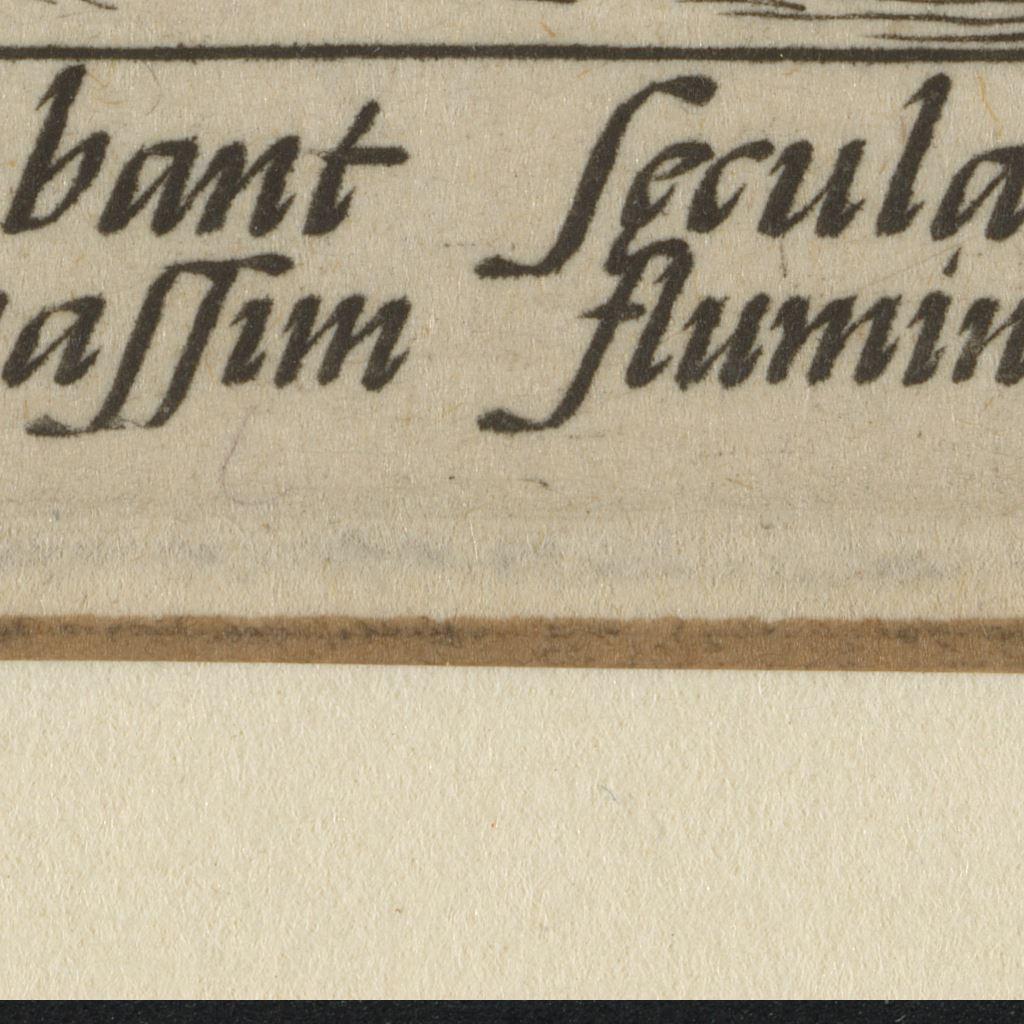 bant ſęcula
aſſim flumin